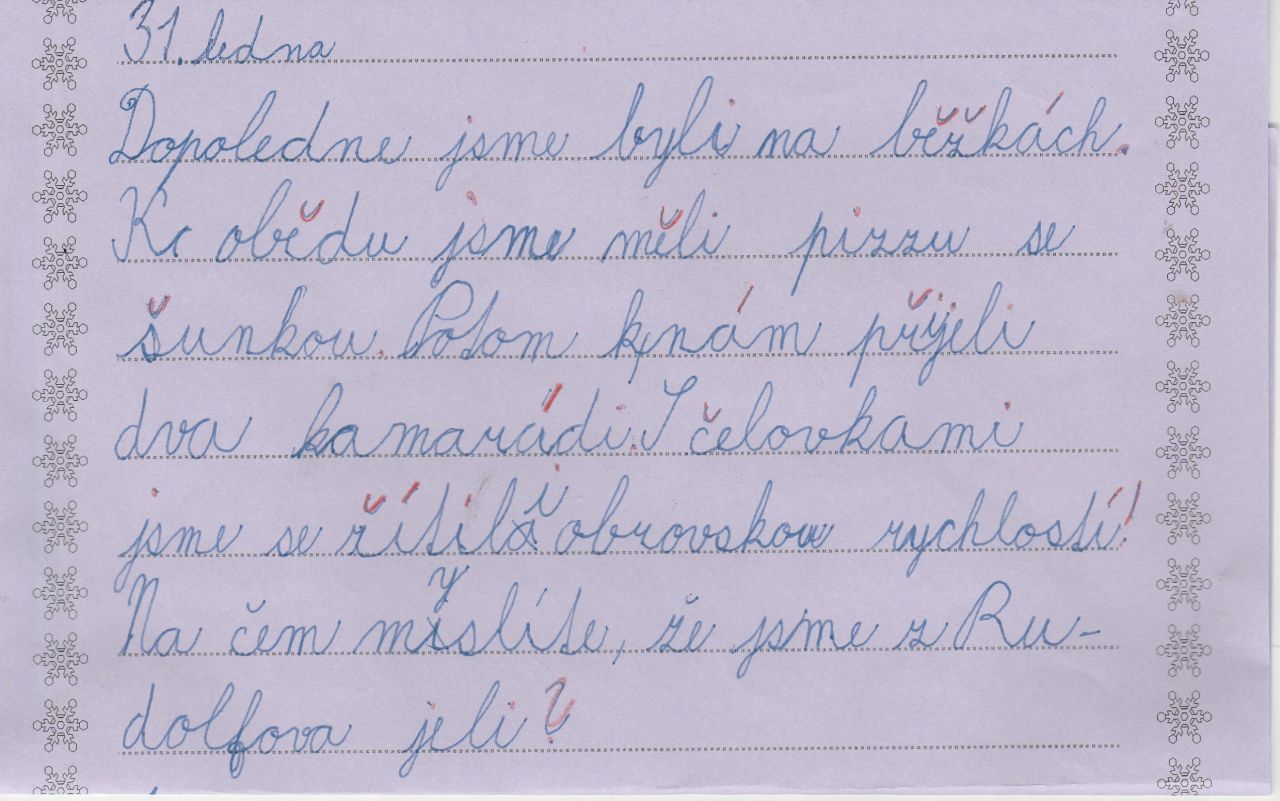 31. ledna
Dopoledne jsme byli na běžkách.
K obědu jsme měli pizzu se
šunkou. Potom k nám přijeli
dva kamarádi. S čelovkami
jsme se řítili obrovskou rychlostí!
Na čem myslíte, že jsme z Ru-
dolfova jeli?